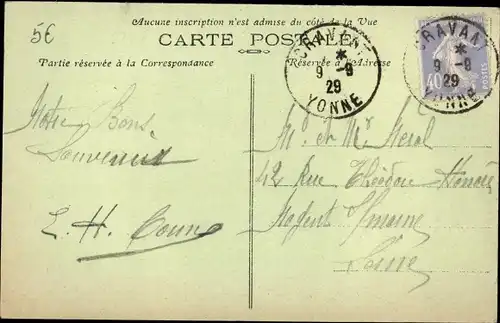 5€
Aucune inscription n'est admise du côté de la Vue
CARTE POSTALE
Partie réservée à la Correspondance
Réservée à l'Adresse
CRAVANT
9 - 9
29
YONNE
CRAVANT
9 - 9
29
YONNE
40
POSTES
Bons
Souvenirs
L. H.
M. et Mr
42 Rue Théodore Honoré
Nogent s/Marne
Seine